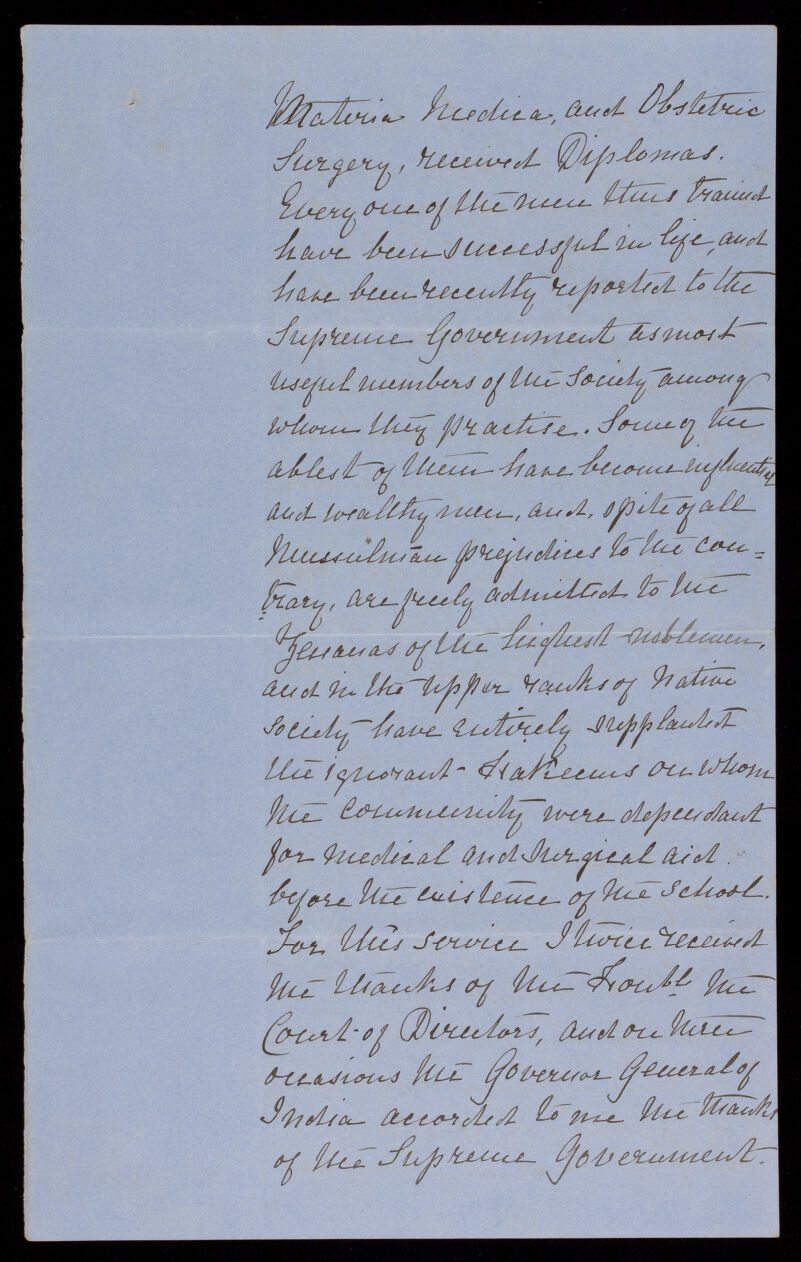 Materia Medica, and Obstetric
Surgery, received Diplomas.
Every one of the men thus trained
have been successful in life, and
have been recently reported to the
Supreme Government as most
useful members of the Society among
whom they practise. Some of the
ablest of them have become influential
and wealthy men, and, spite of all
Mussulman prejudices to the con=
=trary, are freely admitted to the
Zenanas of the highest noblemen,
and in the upper ranks of Native
Society have entirely supplanted
the ignorant Hakeems on whom
the Community were dependant
for Medical and Surgical aid
before the existence of the School.
For this service I twice received
the thanks of the Honble. the
Court of Directors, and on three
occasions the Governor General of
India accorded to me the thanks
of the Supreme Government.